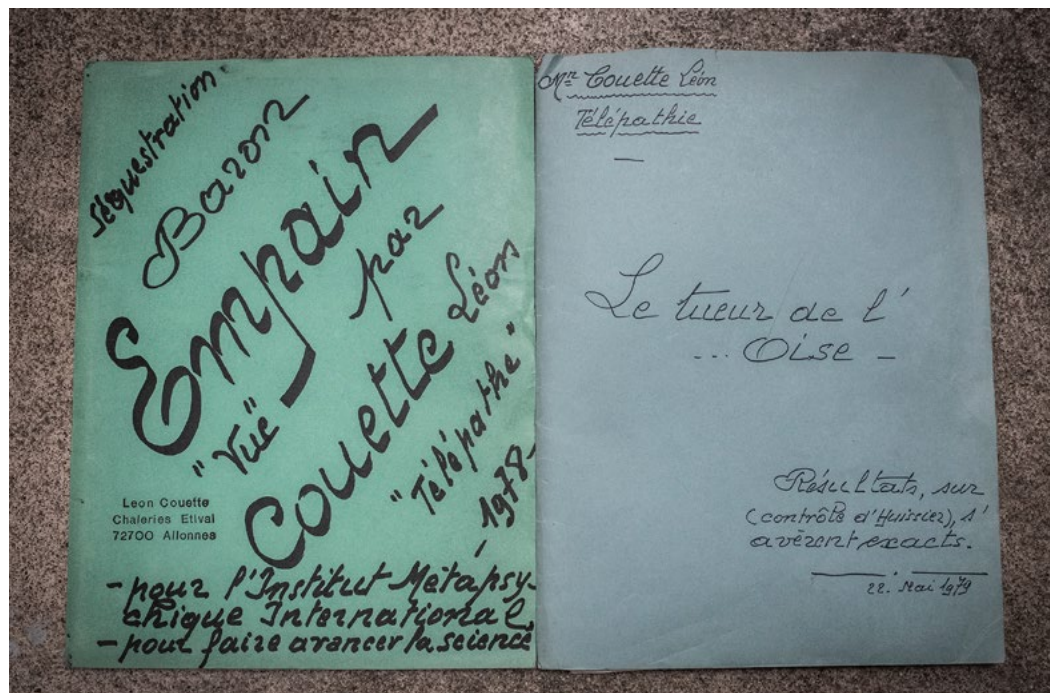 Séquestration
Baron
Empain
"Vue" par
Couette Léon
"Télépathe"
1978-
Leon Couette
Chaleries Etival
72700 Allonnes
- pour l'Institut Métapsy-
chique International,
- pour faire avancer la science
Mr Couette Léon
Télépathie
—
Le tueur de l'
... Oise -
Résultats, sur
(contrôle d'Huissier), s'
avèrent exacts.
22. Mai 1979